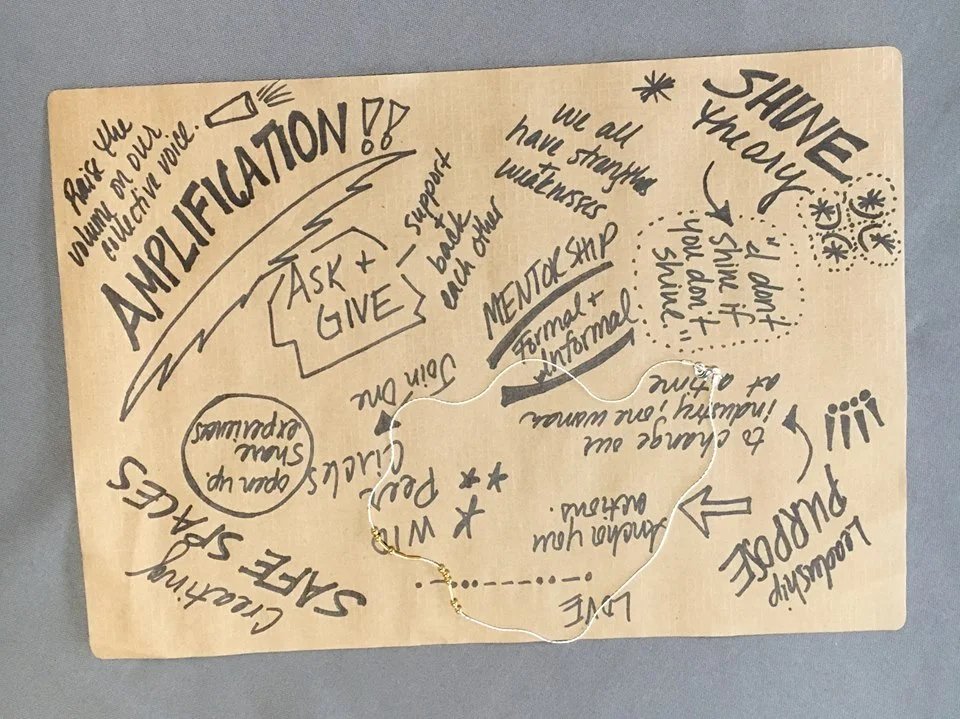 Raise the
volume on our
collective voice.
AMPLIFICATION!!
ASK +
GIVE
support
+
back
each other
we all
have strengths
+
weaknesses
SHINE
theory
"I don't
shine if
you don't
shine."
MENTORSHIP
formal +
informal
Join one
WIA
Peer
Circles
open up.
share
experiences
Creating
SAFE SPACES
Leadership
PURPOSE
to change our
industry, one woman
at a time
Anchor your
actions.
LOVE